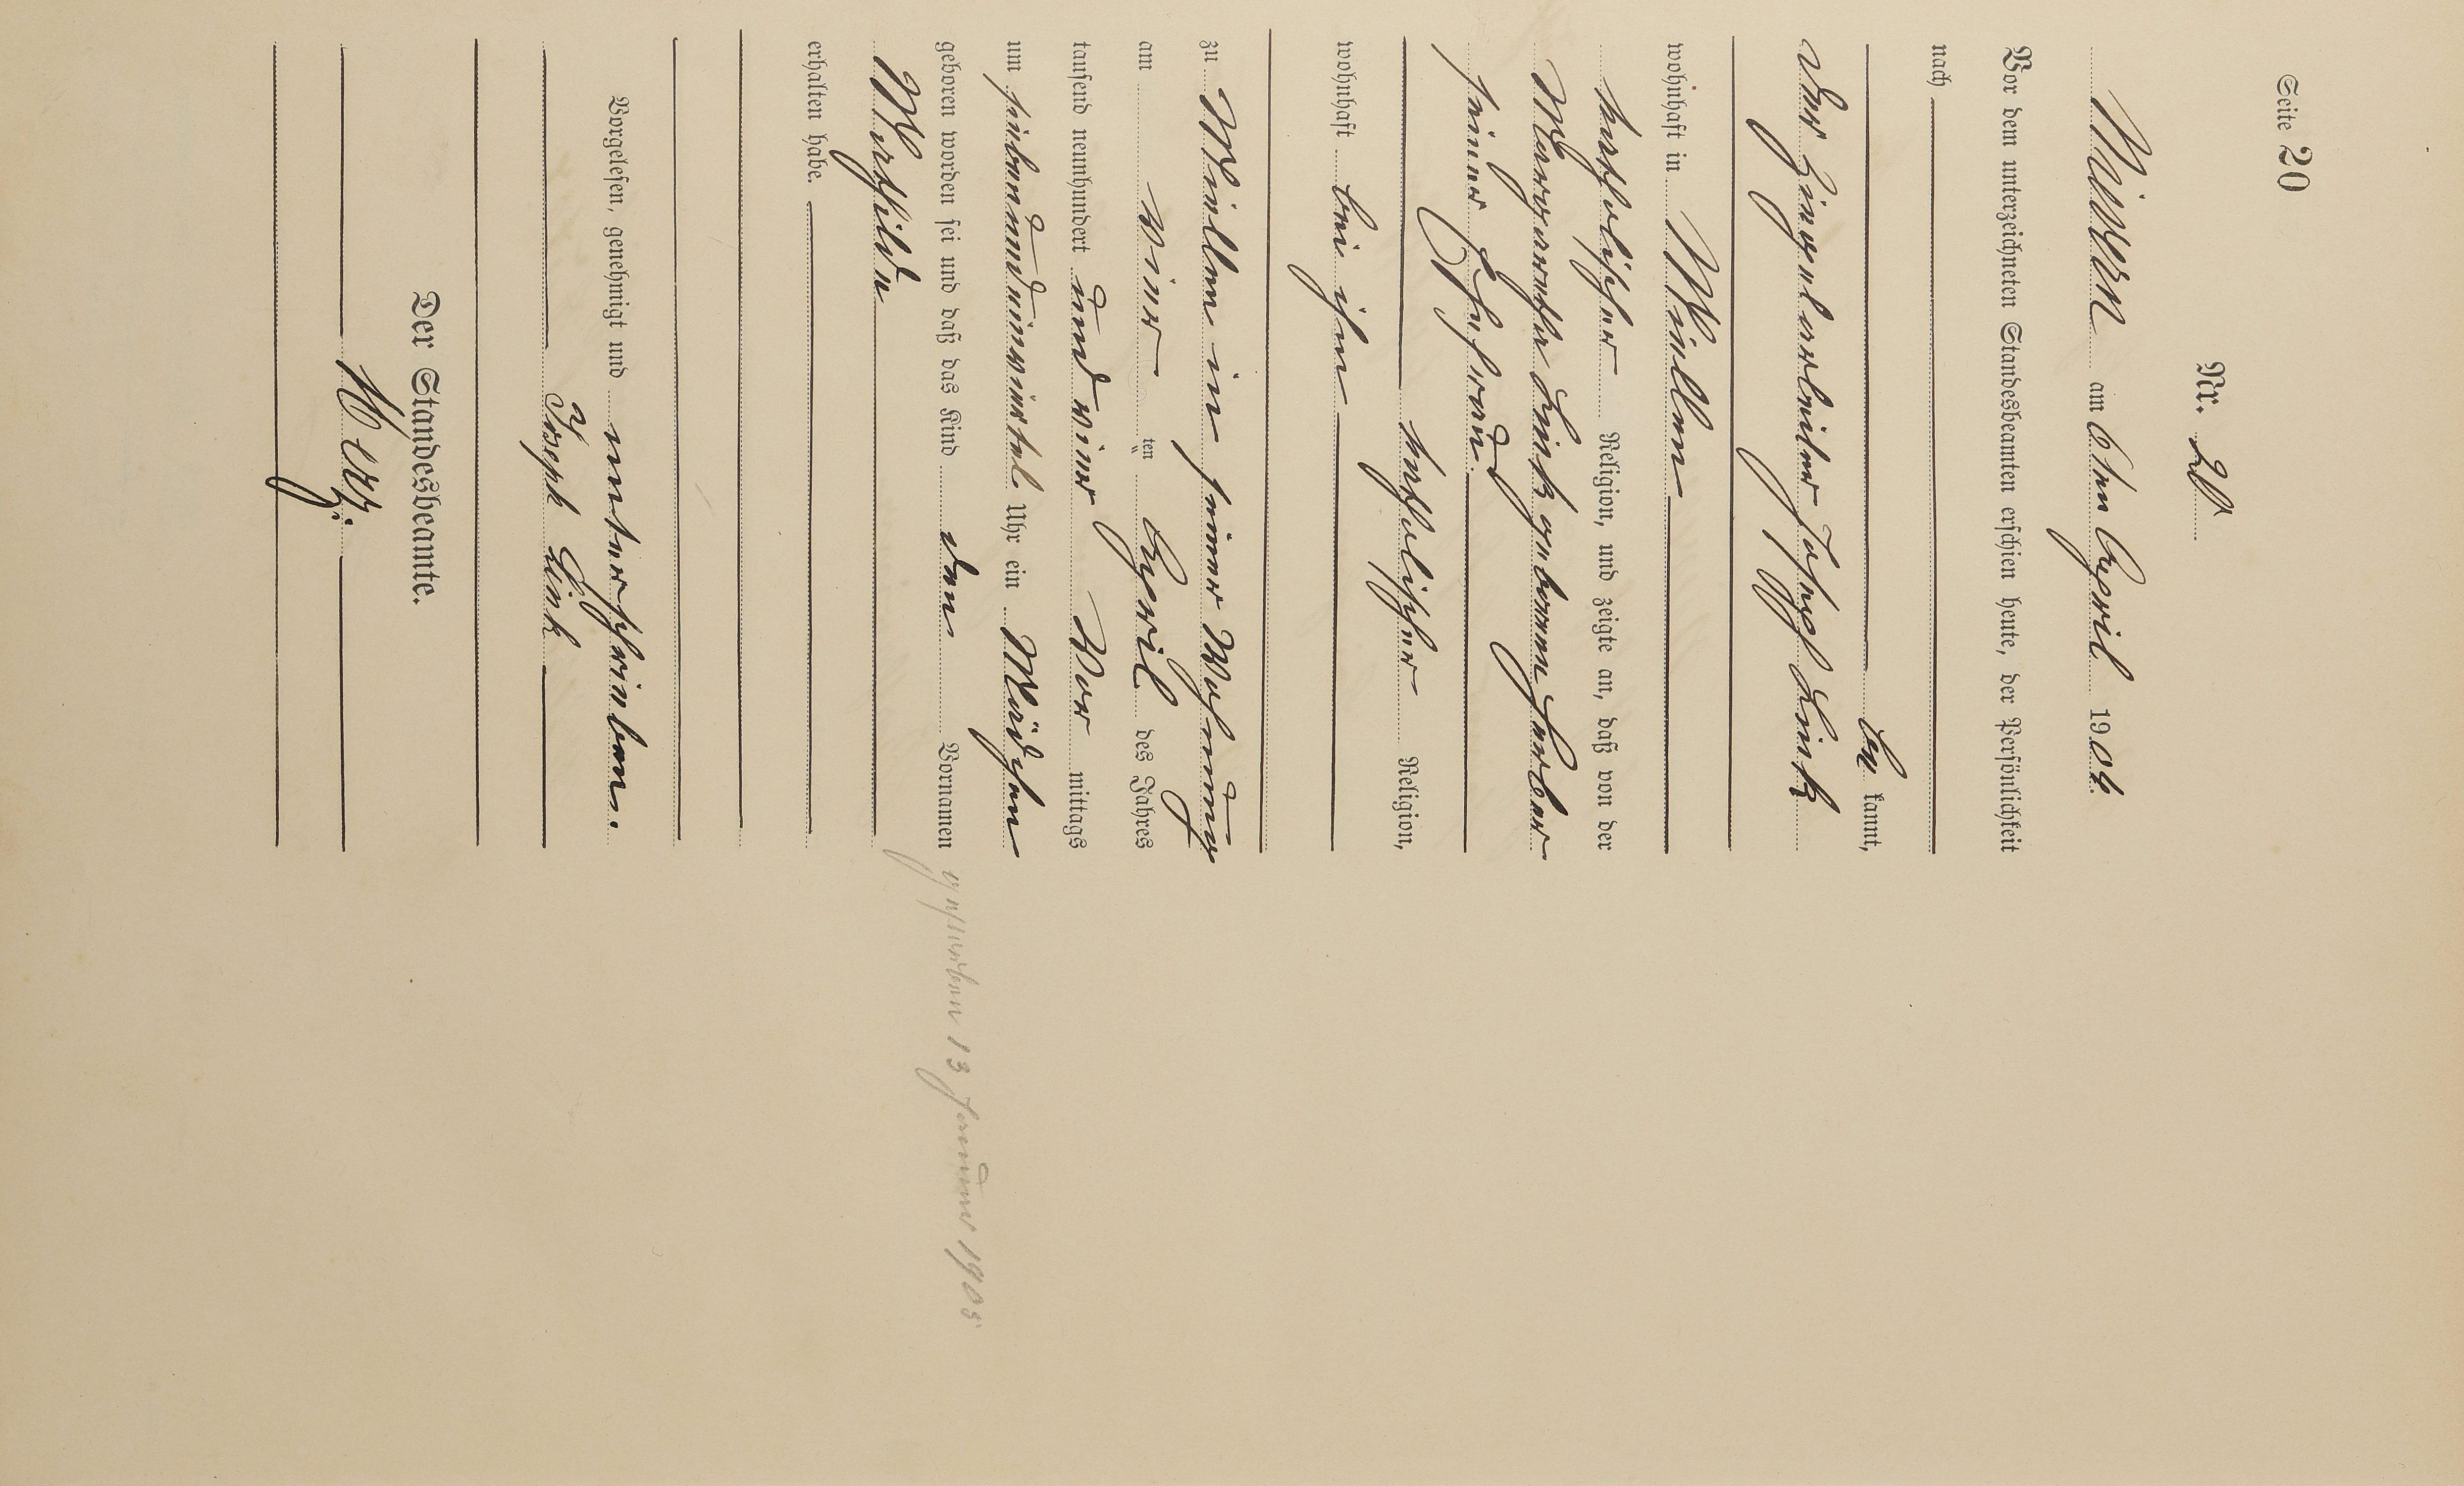 Seite 20
Nr. 20
am 6ten April 1904.
Vor dem unterzeichneten Standesbeamten erschien heute, der Persönlichkeit
nach
be kannt,
der Ziegelarbeiter Joseph Link
wohnhaft in Müllen
katholischer Religion, und zeigte an, daß von der
Margarethe Link geborenen Ferber
seiner Ehefrau
katholischer Religion,
wohnhaft bei ihm
zu Müllen in seiner Wohnung
am vier ten April des Jahres
tausend neunhundert und vier Vor mittags
um siebenundeinviertel Uhr ein Mädchen
geboren worden sei und daß das Kind den Vornamen
gestorben 13 Januar 1905
Mathilde
erhalten habe.
Vorgelesen, genehmigt und unterschrieben.
Joseph Link
Der Standesbeamte.